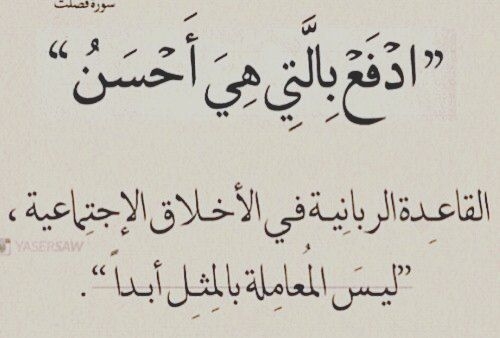 سورة فصلت
”ادْفَعْ بِالَّتِي هِيَ أَحْسَنُ“
القاعِدة الربانِية في الأخلاق الإجتِماعية ،
YASERSAW
”ليسَ المُعامِلة بالمِثِل أبداً“.